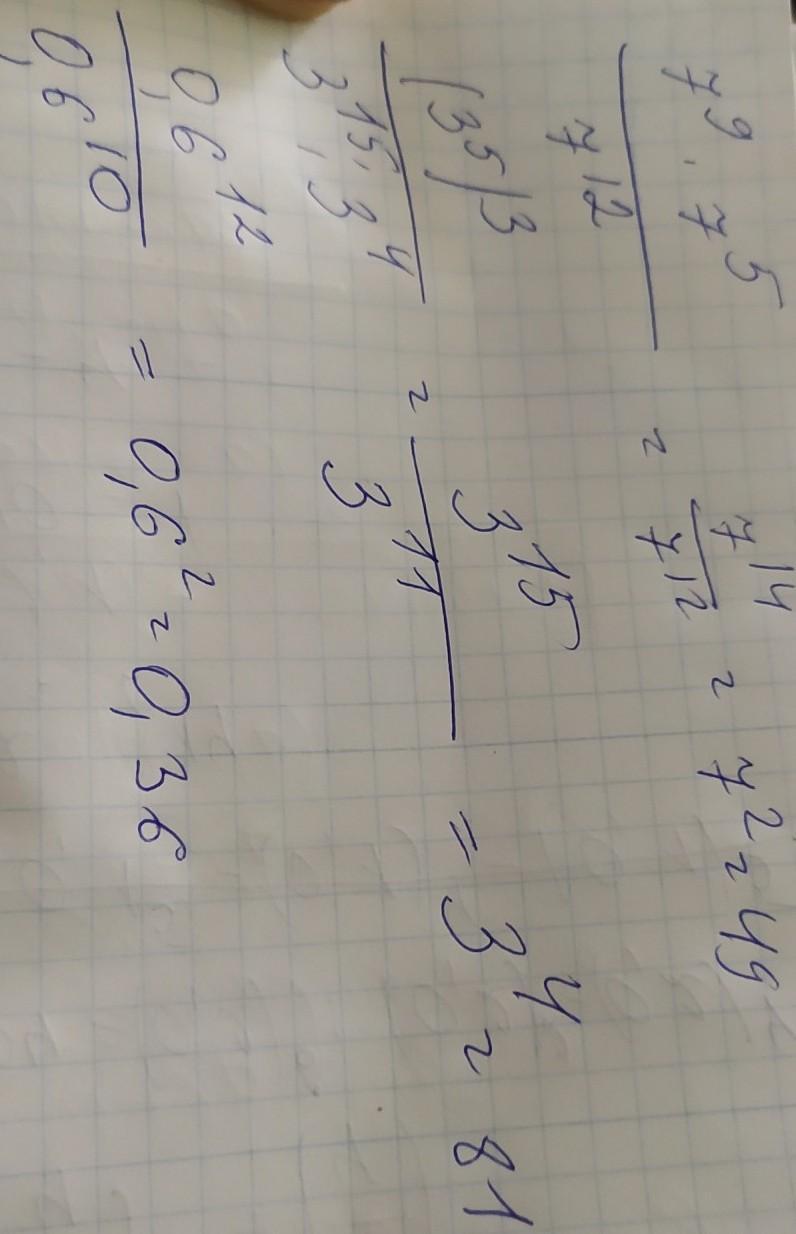 7⁹ · 7⁵ / 7¹² = 7¹⁴ / 7¹² = 7² = 49
(3⁵)³ / 3¹⁵ : 3⁴ = 3¹⁵ / 3¹¹ = 3⁴ = 81
0,6¹² / 0,6¹⁰ = 0,6² = 0,36